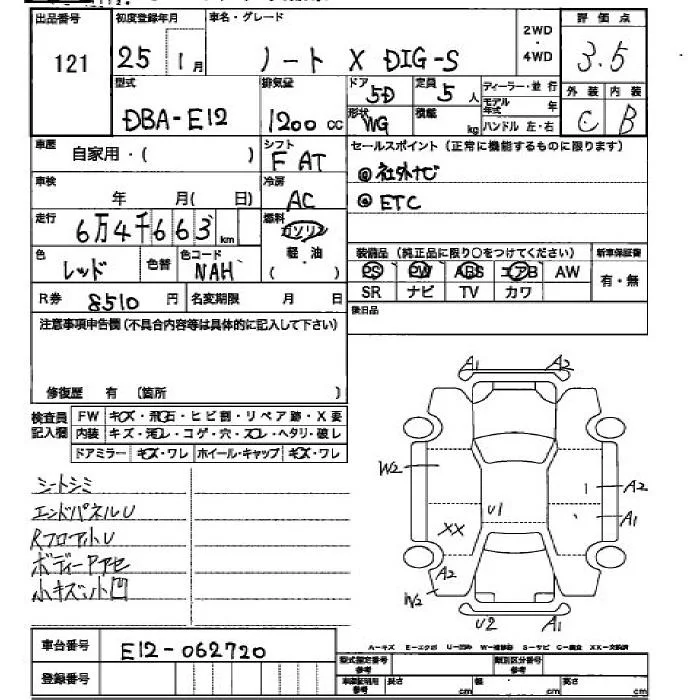 出品番号
121
初度登録年月
25 1月
車名・グレード
ノート X DIG-S
2WD
・
4WD
評価点
3.5
外装 内装
C B
型式
DBA-E12
排気量
1200 cc
ドア
5D
定員
5人
形状
WG
積載
kg
ディーラー・並行
モデル年式 年
ハンドル 左・右
車歴
自家用・( )
シフト
F AT
車検
年 月( 日)
冷房
AC
走行
6万4千663km
燃料
ガソリン
軽・油
( )
色
レッド
色替
色コード
NAH
R券 8510 円
名変期限 月 日
セールスポイント(正常に機能するものに限ります)
◎社外ナビ
◎ETC
装備品(純正品に限り○をつけてください)
PS PW ABS エアB AW
SR ナビ TV カワ
新車保証書
有・無
後日品
注意事項申告欄(不具合内容等は具体的に記入して下さい)
修復歴 有 〔箇所 〕
検査員
記入欄
FW キズ・飛石・ヒビ割・リペア跡・X要
内装 キズ・汚レ・コゲ・穴・スレ・ヘタリ・破レ
ドアミラー キズ・ワレ ホイール・キャップ キズ・ワレ
シートシミ
エンドパネルU
RフロアトU
ボディーPアセ
小キズ小凹
A1 A2
W2
A2
U1
A1
XX
A2
W2
U2 A1
A-キズ E-エクボ U-凹み W-補修跡 S-サビ C-腐食 XX-交換済
車台番号
E12-062720
登録番号
型式指定番号
参考
類別区分番号
参考
車庫証明用
参考
長さ cm
幅 cm
高さ cm